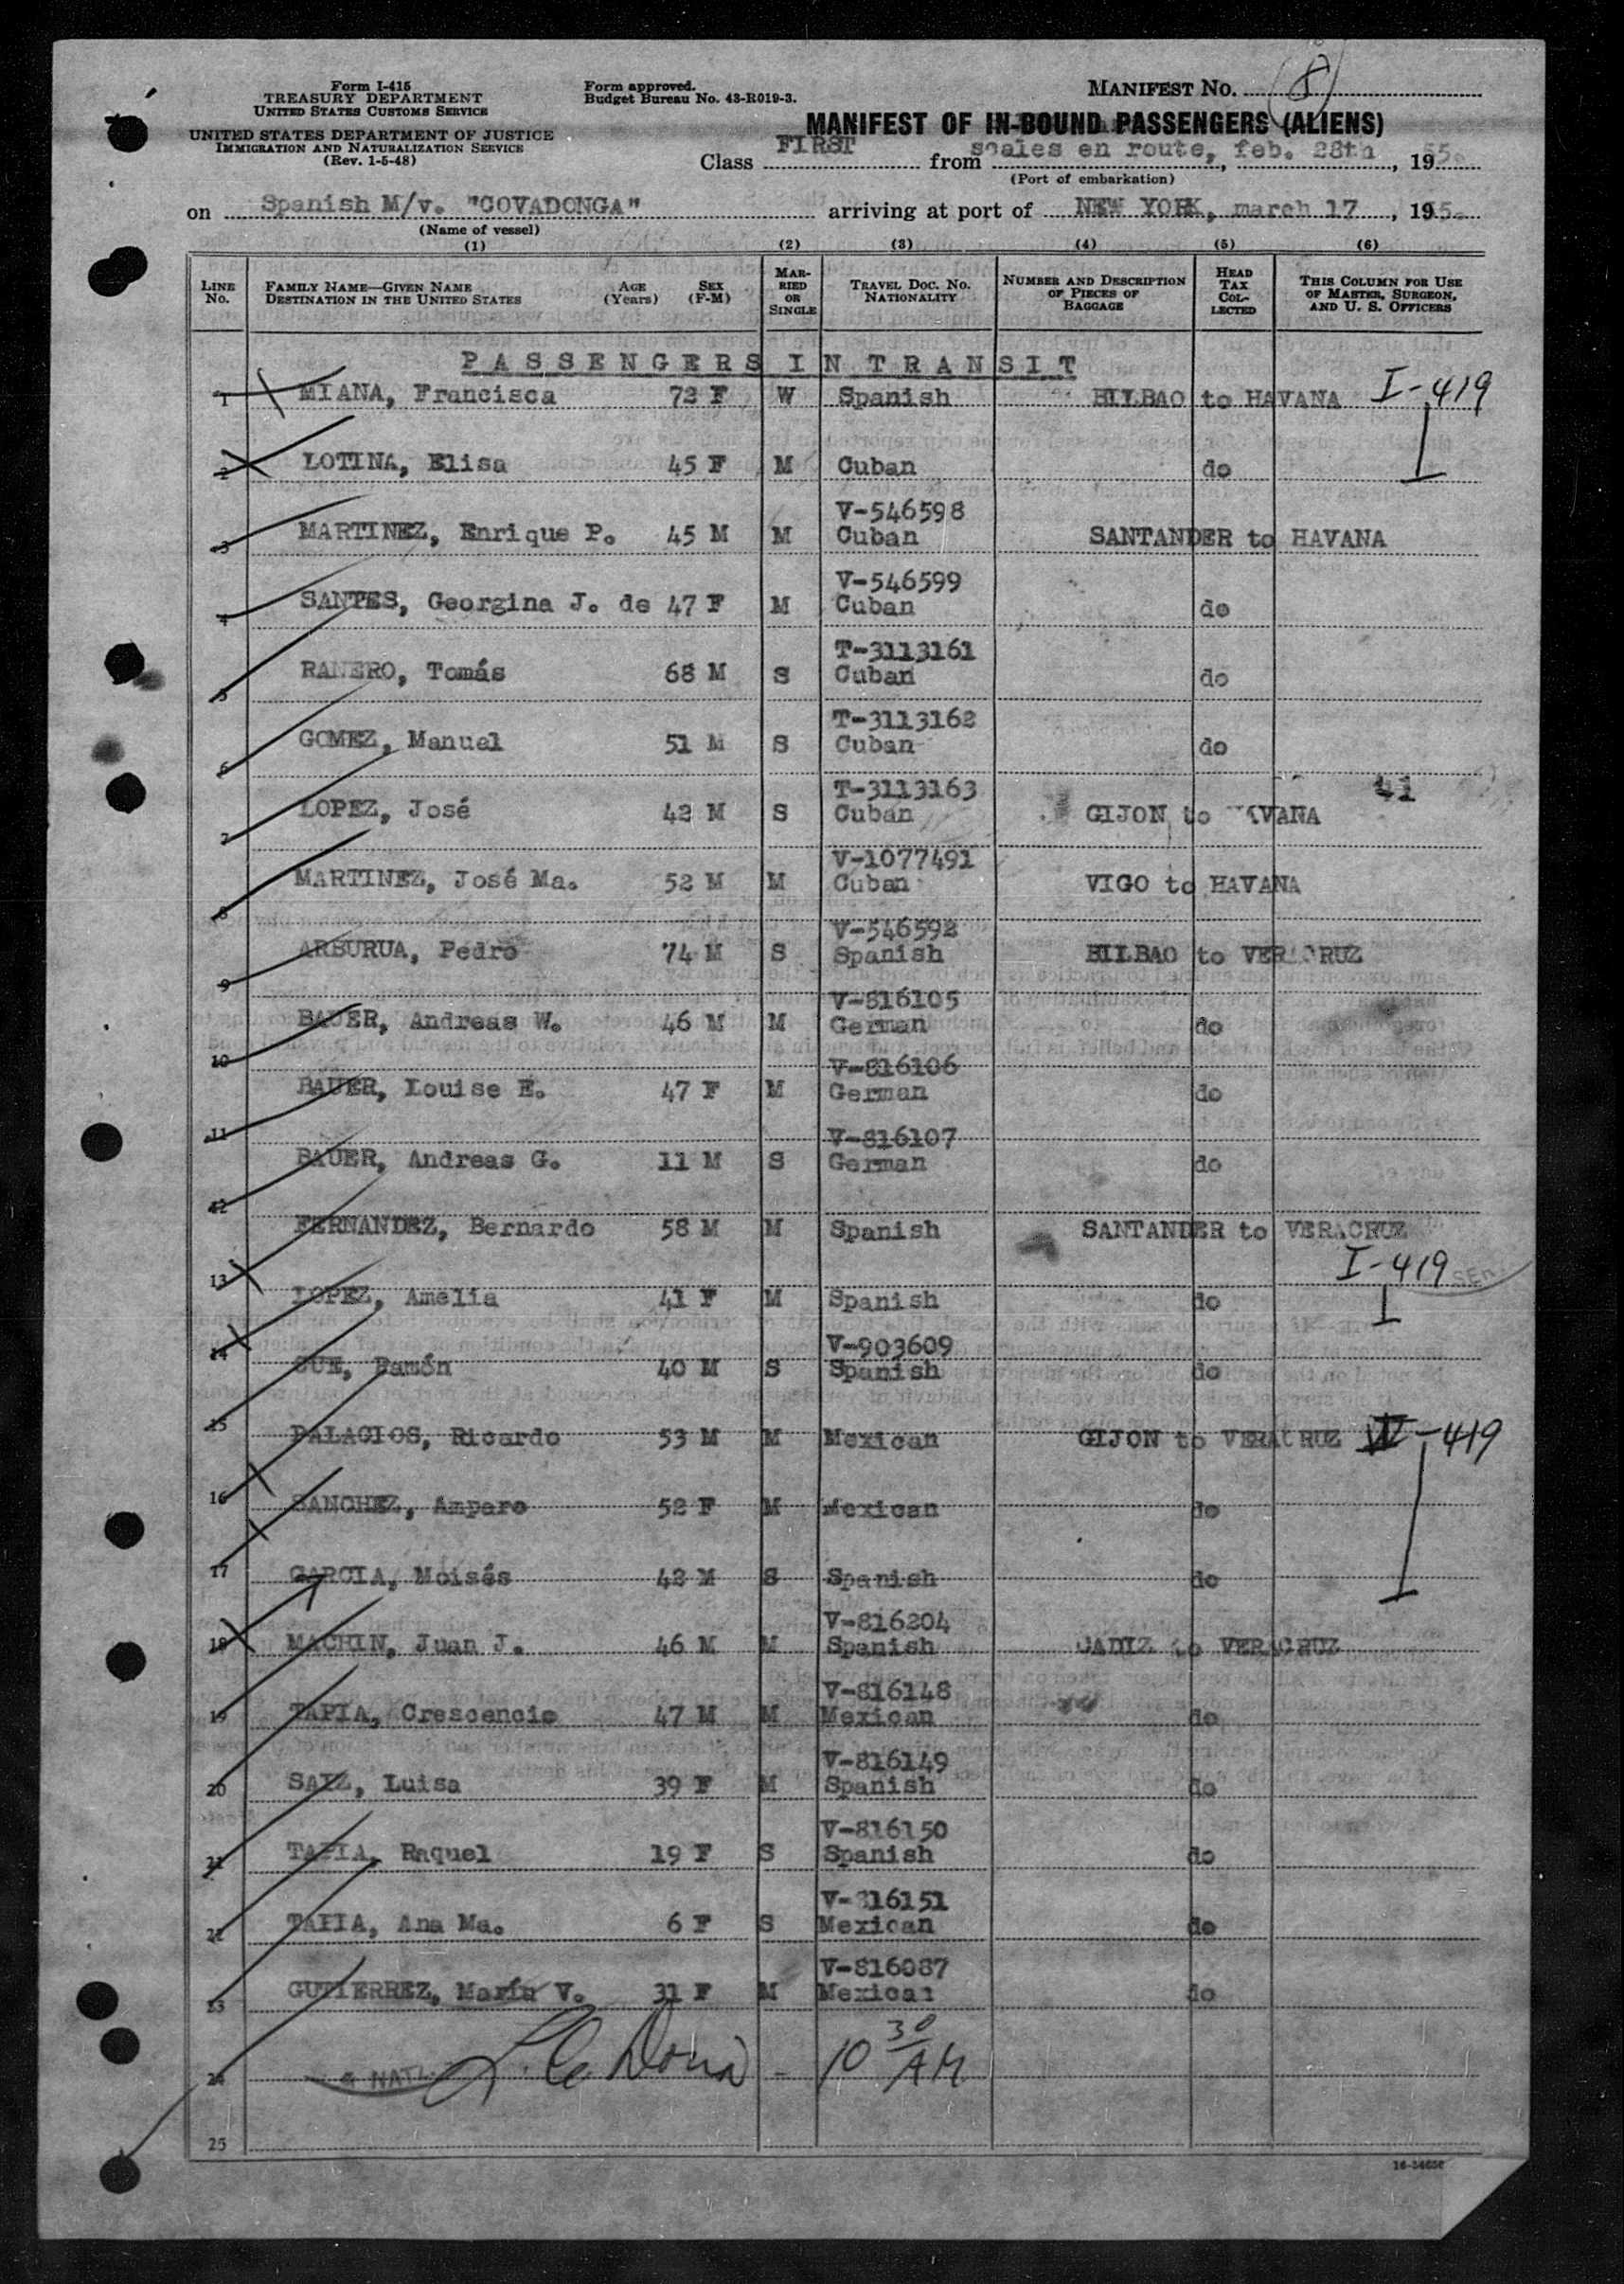 Form I-415
TREASURY DEPARTMENT
UNITED STATES CUSTOMS SERVICE
UNITED STATES DEPARTMENT OF JUSTICE
IMMIGRATION AND NATURALIZATION SERVICE
(Rev. 1-5-48)
Form approved.
Budget Bureau No. 43-R019-3.
MANIFEST NO. (8)
MANIFEST OF IN-BOUND PASSENGERS (ALIENS)
Class FIRST from scales en route, feb. 28th, 1955.
(Port of embarkation)
on Spanish M/v. "COVADONGA" arriving at port of NEW YORK, march 17, 195.
(Name of vessel)
(1) (2) (3) (4) (5) (6)
LINE NO. FAMILY NAME—GIVEN NAME DESTINATION IN THE UNITED STATES AGE (Years) SEX (F-M) MARRIED OR SINGLE TRAVEL DOC. NO. NATIONALITY NUMBER AND DESCRIPTION OF PIECES OF BAGGAGE HEAD TAX COLLECTED THIS COLUMN FOR USE OF MASTER, SURGEON, AND U. S. OFFICERS
PASSENGERS IN TRANSIT
1 MIANA, Francisca 72 F W Spanish BILBAO to HAVANA I-419
2 LOTINA, Elisa 45 F M Cuban do
V-546598
3 MARTINEZ, Enrique P. 45 M M Cuban SANTANDER to HAVANA
V-546599
4 SANTES, Georgina J. de 47 F M Cuban do
T-3113161
5 RANERO, Tomás 68 M S Cuban do
T-3113162
6 GOMEZ, Manuel 51 M S Cuban do
41
T-3113163
7 LOPEZ, José 42 M S Cuban GIJON to HAVANA
V-1077491
8 MARTINEZ, José Ma. 52 M M Cuban VIGO to HAVANA
V-546592
9 ARBURUA, Pedro 74 M S Spanish BILBAO to VERACRUZ
V-816105
10 BAUER, Andreas W. 46 M M German do
V-816106
11 BAUER, Louise E. 47 F M German do
V-816107
12 BAUER, Andreas G. 11 M S German do
FERNANDEZ, Bernardo 58 M M Spanish SANTANDER to VERACRUZ
13 I-419
LOPEZ, Amelia 41 F M Spanish do
14 V-903609
SUE, Ramón 40 M S Spanish do
15 PALACIOS, Ricardo 53 M M Mexican GIJON to VERACRUZ -419
16 SANCHEZ, Amparo 52 F M Mexican do
17 GARCIA, Moisés 42 M S Spanish do
V-816204
18 MACHIN, Juan J. 46 M M Spanish CADIZ to VERACRUZ
V-816148
19 TAPIA, Crescencio 47 M M Mexican do
V-816149
20 SAIZ, Luisa 39 F M Spanish do
V-816150
21 TAPIA, Raquel 19 F S Spanish do
V-816151
22 TAPIA, Ana Ma. 6 F S Mexican do
V-816087
23 GUTIERREZ, María V. 31 F M Mexican do
24 10 30 AM
25